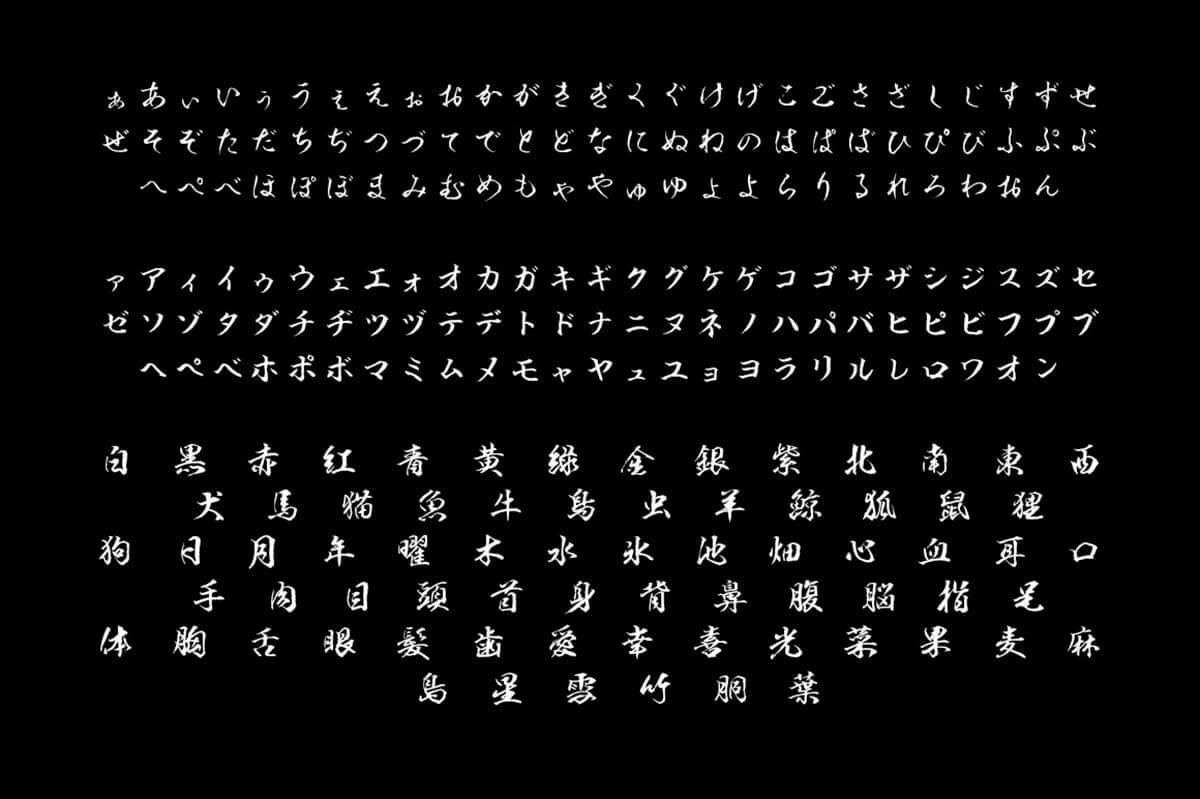 ぁあぃいぅうぇえぉおかがきぎくぐけげこごさざしじすずせ
ぜそぞただちぢつづてでとどなにぬねのはぱばひぴびふぷぶ
へぺべほぽぼまみむめもゃやゅゆょよらりるれろわおん
ァアィイゥウェエォオカガキギクグケゲコゴサザシジスズセ
ゼソゾタダチヂツヅテデトドナニヌネノハパバヒピビフプブ
ヘペベホポボマミムメモャヤュユョヨラリルレロワオン
白 黒 赤 紅 青 黄 緑 金 銀 紫 北 南 東 西
犬 馬 猫 魚 牛 鳥 虫 羊 鯨 狐 鼠 狸
狗 日 月 年 曜 木 水 氷 池 畑 心 血 耳 口
手 肉 目 頭 首 身 背 鼻 腹 脳 指 足
体 胸 舌 眼 髪 歯 愛 幸 喜 光 菜 果 麦 麻
島 星 雪 竹 胴 葉